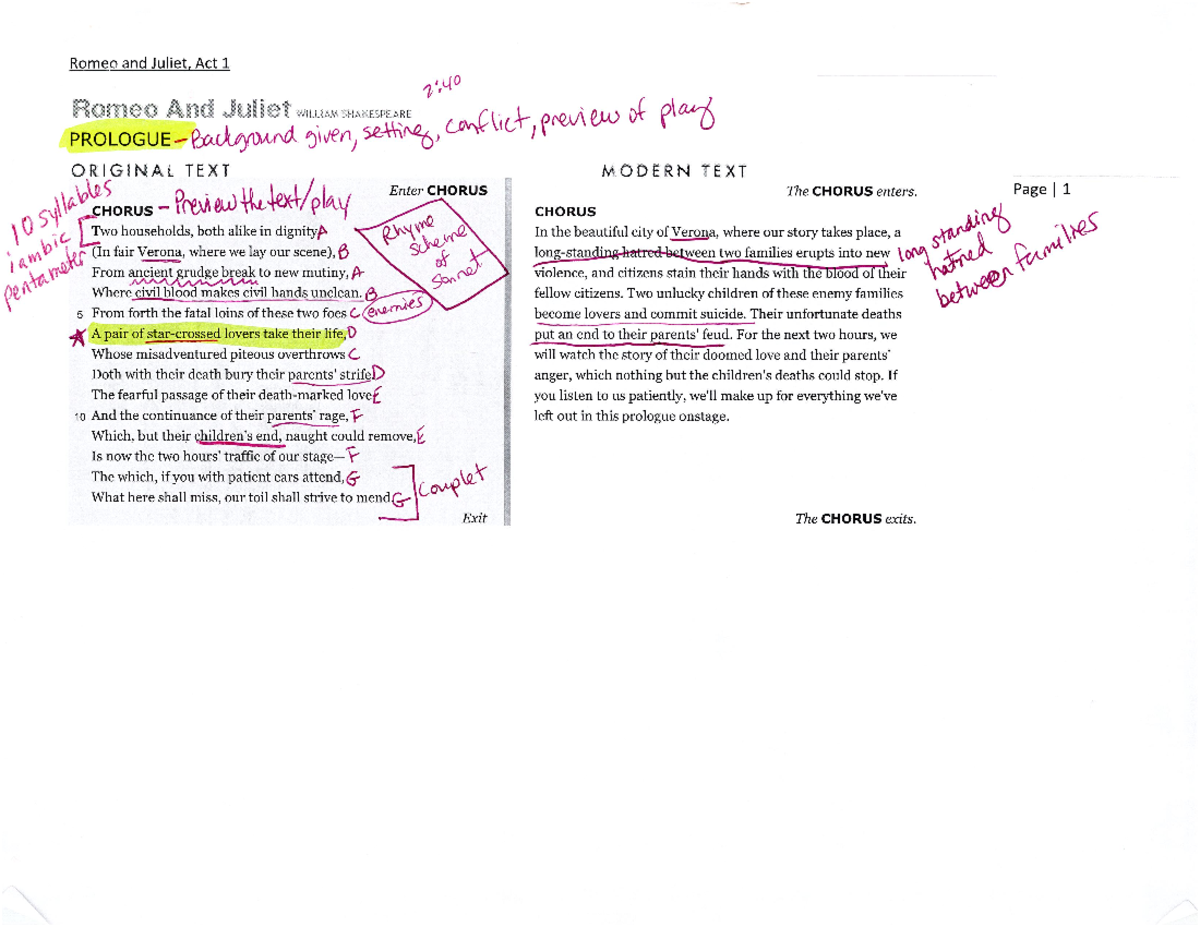 Romeo and Juliet, Act 1
2:40
Romeo And Juliet WILLIAM SHAKESPEARE
PROLOGUE – Background given, setting, conflict, preview of play
ORIGINAL TEXT
10 syllables
iambic
pentameter
Enter CHORUS
CHORUS – Preview the text/play
Two households, both alike in dignity A
(In fair Verona, where we lay our scene), B
From ancient grudge break to new mutiny, A
Where civil blood makes civil hands unclean. B
5 From forth the fatal loins of these two foes C (enemies)
A pair of star-crossed lovers take their life, D
Whose misadventured piteous overthrows C
Doth with their death bury their parents' strife. D
The fearful passage of their death-marked love E
10 And the continuance of their parents' rage, F
Which, but their children's end, naught could remove, E
Is now the two hours' traffic of our stage— F
The which, if you with patient ears attend, G
What here shall miss, our toil shall strive to mend. G
Couplet
Exit
Rhyme
scheme
of
Sonnet
MODERN TEXT
The CHORUS enters.
Page | 1
CHORUS
In the beautiful city of Verona, where our story takes place, a
long-standing hatred between two families erupts into new
violence, and citizens stain their hands with the blood of their
fellow citizens. Two unlucky children of these enemy families
become lovers and commit suicide. Their unfortunate deaths
put an end to their parents' feud. For the next two hours, we
will watch the story of their doomed love and their parents'
anger, which nothing but the children's deaths could stop. If
you listen to us patiently, we'll make up for everything we've
left out in this prologue onstage.
long standing
hatred
between families
The CHORUS exits.